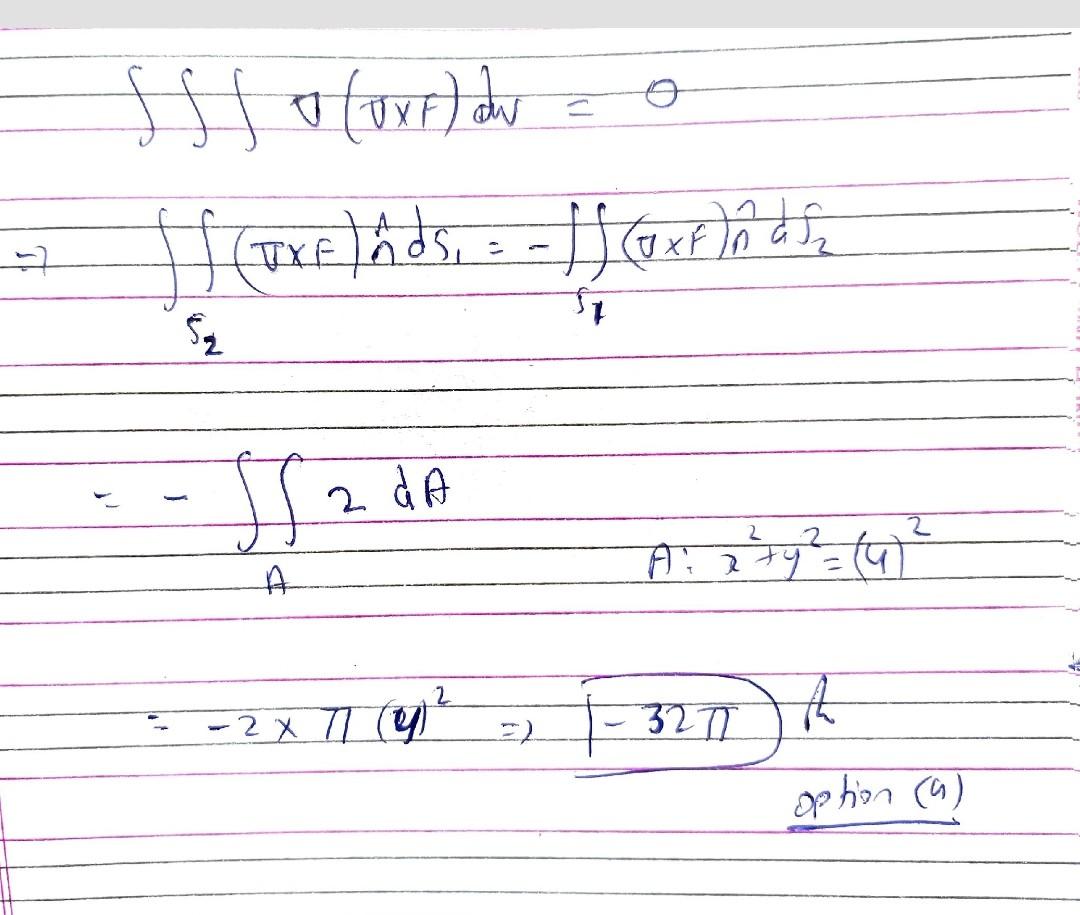 ∫∫∫ ∇(∇×F) dv = 0
=> ∫∫_{S₂} (∇×F) n̂ dS₁ = - ∫∫_{S₁} (∇×F) n̂ dS₂
= - ∫∫_A 2 dA
A: x²+y²=(4)²
= -2 × π (4)² => -32π
option (a)